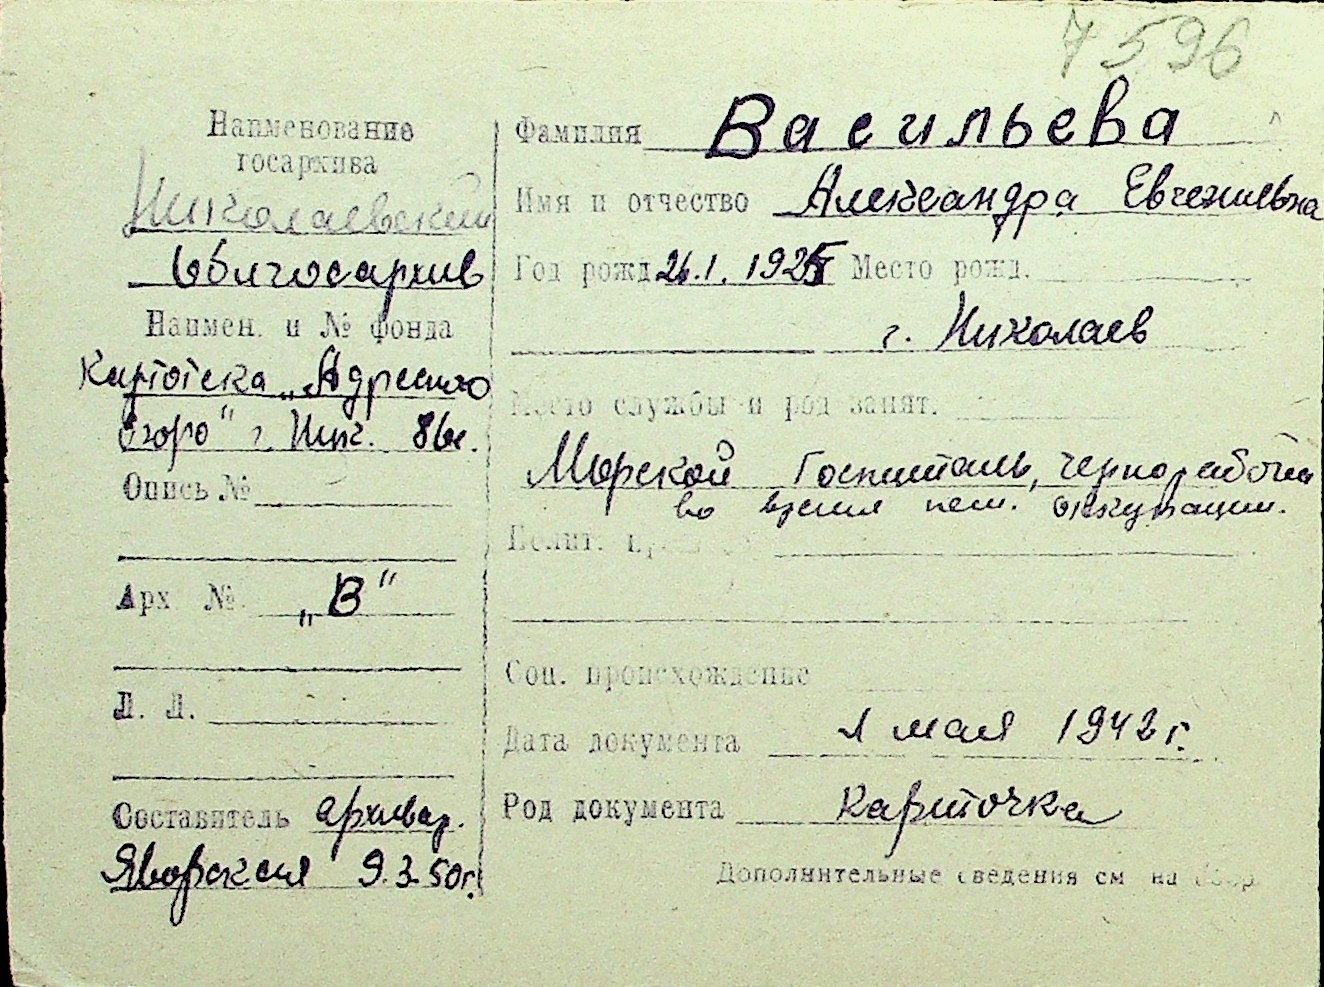 7596
Наименование
госархива
Николаевский
облгосархив
Наимен. и № фонда
Картотека „Адресного
бюро" г. Ник.
Опись №
Арх №. „В"
Л. Л.
Составитель архивар.
Яворская 9.3.50г.
Фамилия Васильева
Имя и отчество Александра Евгениевна
Год рожд. 26.1. Место рожд.
г. Николаев
Место службы и род занят.
Морской Госпиталь, чернорабочая
во время нем. оккупации.
Полит.
Соц. происхождение
Дата документа 1 мая 1942 г.
Род документа карточка
Дополнительные сведения см на обор